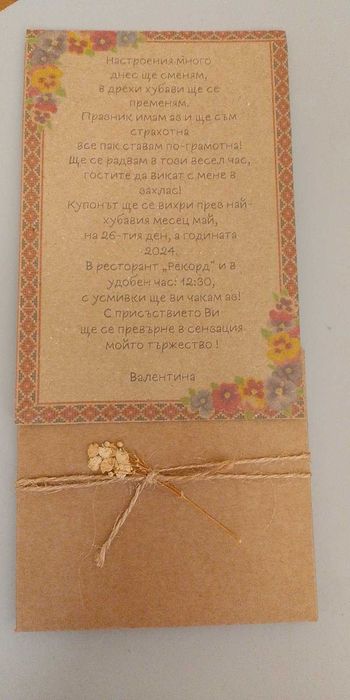 Настроения много
днес ще сменям,
в дрехи хубави ще се
пременям.
Празник имам аз и ще съм
страхотна
все пак ставам по-грамотна!
Ще се радвам в този весел час,
гостите да викат с мене в
захлас!
Купонът ще се вихри през най-
хубавия месец май,
на 26-тия ден, а годината
2024.
В ресторант „Рекорд" и в
удобен час: 12:30,
с усмивки ще ви чакам аз!
С присъствието Ви
ще се превърне в сензация
мойто тържество !
Валентина